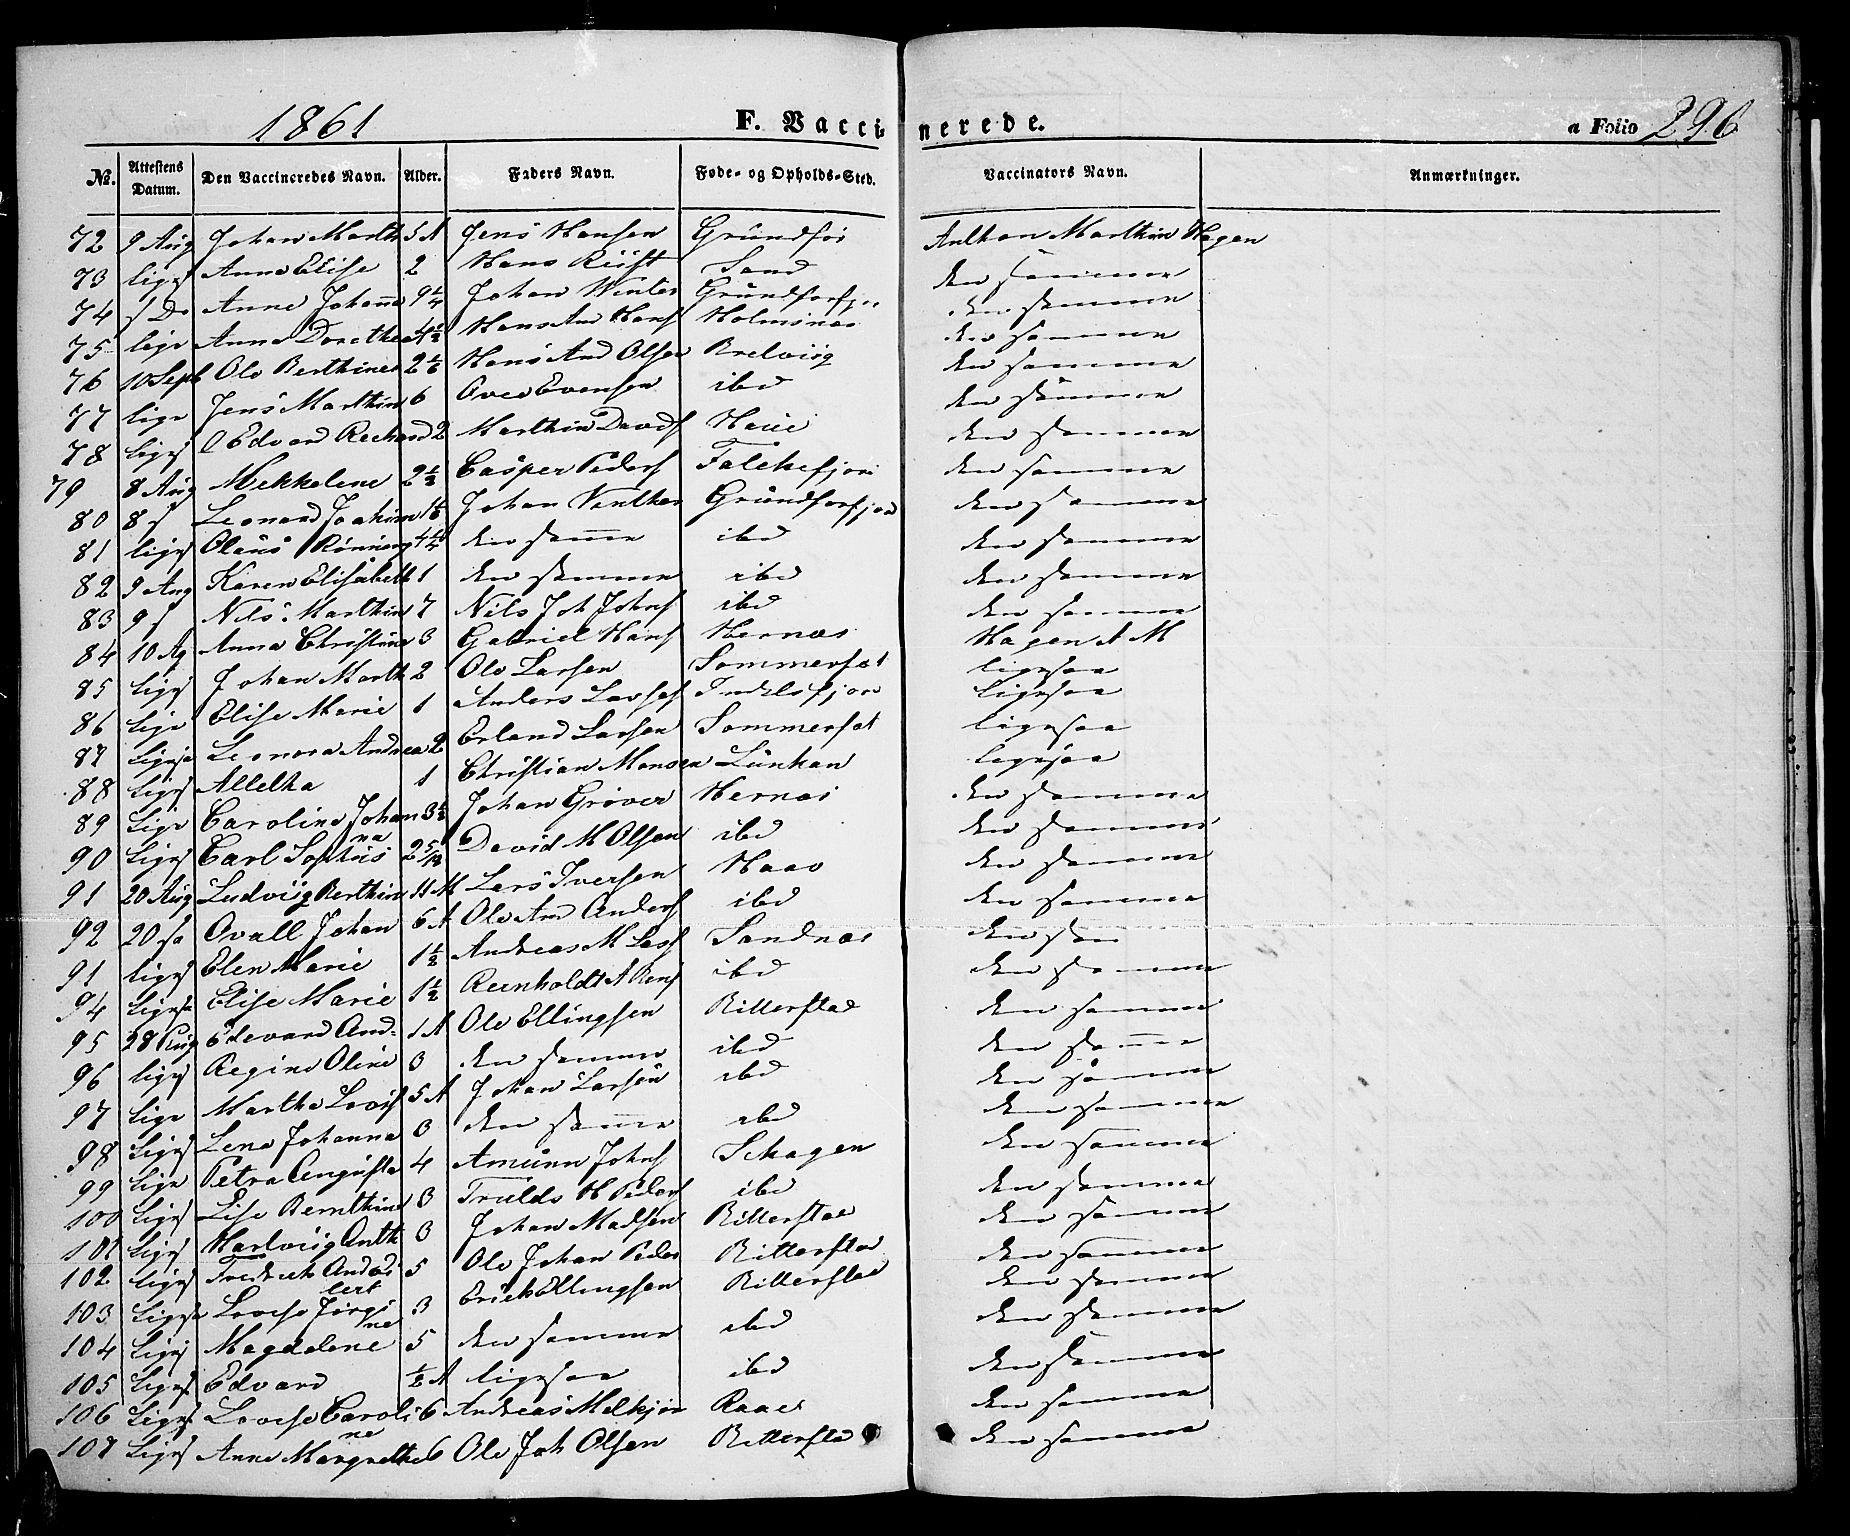 1861 F. Vaccinerede. a Folio 296
No. Attestens Datum. Den Vaccineredes Navn. Alder. Faders Navn. Føde- og Opholds-Sted. Vaccinators Navn. Anmærkninger.
72 9 Aug Johan Marth 5 A Jens Hansen Grundfor Anthon Marthin Hagen
73 ligs Anne Elise 2 Hans Sand den samme
74 s Do Anne Johanne 9 1/4 Johan Winter Grundforfj den samme
75 lige Anne Dorethea 4 1/2 Hans And Hans Holmsnæs den samme
76 10 Sept Ole Berthines 2 1/6 Hans And Olsen Bredviig den samme
77 lige Jens Marthin 6 Ove Evensen ibd den samme
78 ligs Edvard Rechard 2 Marthin Davids den samme
79 8 Aug Mekkeline 2 1/2 Casper Peders Falchefjor den samme
80 8 s Leonard Joakim 1 1/6 Johan Vinther Grundforfjord den samme
81 ligs Olaus Rønning 4 1/4 den samme ibd den samme
82 9 Aug Karen Elisabeth 1 den samme ibd den samme
83 9 s Nils Marthin 7 Nils Joh Johns ibd den samme
84 10 Ag Anna Christine 3 Gabriel Hans Hernæs Hagen A M
85 ligs Johan Marth 2 Ole Larsen Sommersæt ligesaa
86 lige Elise Marie 1 Anders Larses Indelsfjor ligesaa
87 Ligesa Leonora Andrea 2 Erland Larsen Sommersæt ligesaa
88 Ligs Alletha 1 Christian Monsen Lunkan ligesaa
89 Lige Caroline Johan 3 1/2 Johan Grøver Hernæs den samme
na
90 Ligs Carl Sophus 2 5/12 David M Olsen ibd den samme
91 20 Aug Ludvig Berthin 11 M Lars Iversen Haav den samme
92 20 sa Ovall Johan 6 A Ole And Anders ibd den samme
91 ligs Elen Marie 1 1/2 Andreas M Lars Sandnæs den sam
94 Ligesa Elise Marie 1 1/2 Reenholdt A Bens ibd den samme
95 28 Aug Edevard And- 1 A Ole Ellingsen Ritterstad den samme
96 ligs Regine Oline 3 den samme ibd den samme
97 Lige Martha Lovis 5 A Johan Larsen ibd den samme
98 Ligs Lena Johanna 3 den samme ibd den samme
99 Lige Petra Augusta 4 Amunn Johns Schagen den samme
100 Ligs Lise Bernthine 3 Trulds H Peders ibd den samme
101 Ligs Hartviig Anth 3 Johan Madsen Ritterstad den samme
102 ligs Fredrech Andas 5 Ole Johan Peder Ritterstad den samme
103 Ligesa Lovise Jørgi 3 Erich Ellingsen Ritterstad den samme
ne
104 Ligs Magdalene 5 den samme ibd den samme
105 Ligs Edvard 1/2 A ligesaa ibd den samme
106 Ligs Lovise Caroli 6 Andreas Melkjør Raaes den samme
ne
107 Ligs Anne Margrethe 6 Ole Joh Olsen Ritterstad den samme